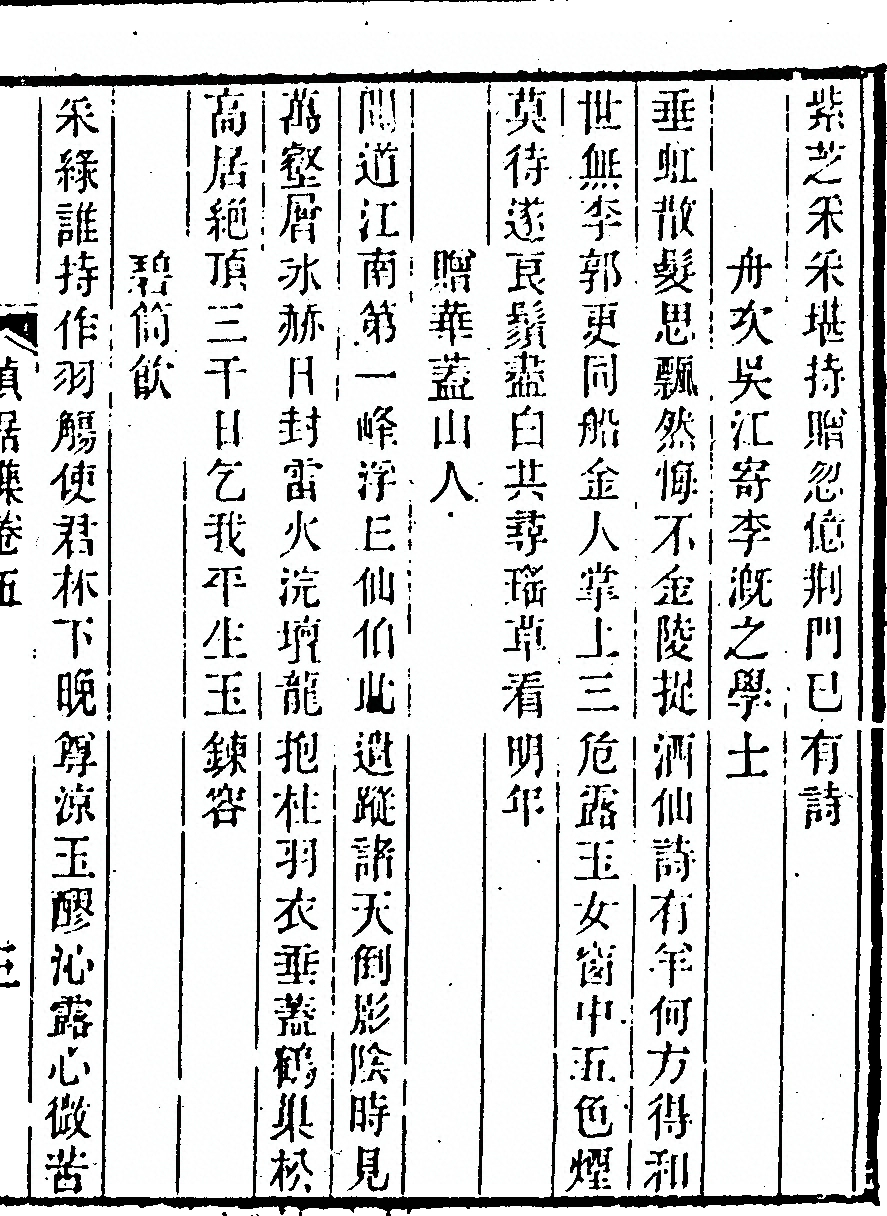 紫芝采采堪持贈忽億荆門已有詩
舟次吳江寄李漑之學士
垂虹散髮思飄然悔不金陵捉酒仙詩有年何方得和
世無李郭更同船金人掌上三危露玉女窗中五色煙
莫待遂良鬚盡白共尋瑤草看明年
贈華蓋山人
聞道江南第一峰浮丘仙伯此遺蹤諸天倒影陰時見
萬壑層冰赫日封雷火浣壇龍抱柱羽衣垂蓋鶴巢松
高居絶頂三千日乞我平生玉鍊容
碧筒飲
采綠誰持作羽觴使君杯下晚尊涼玉醪沁露心微苦
貞居集卷五
三